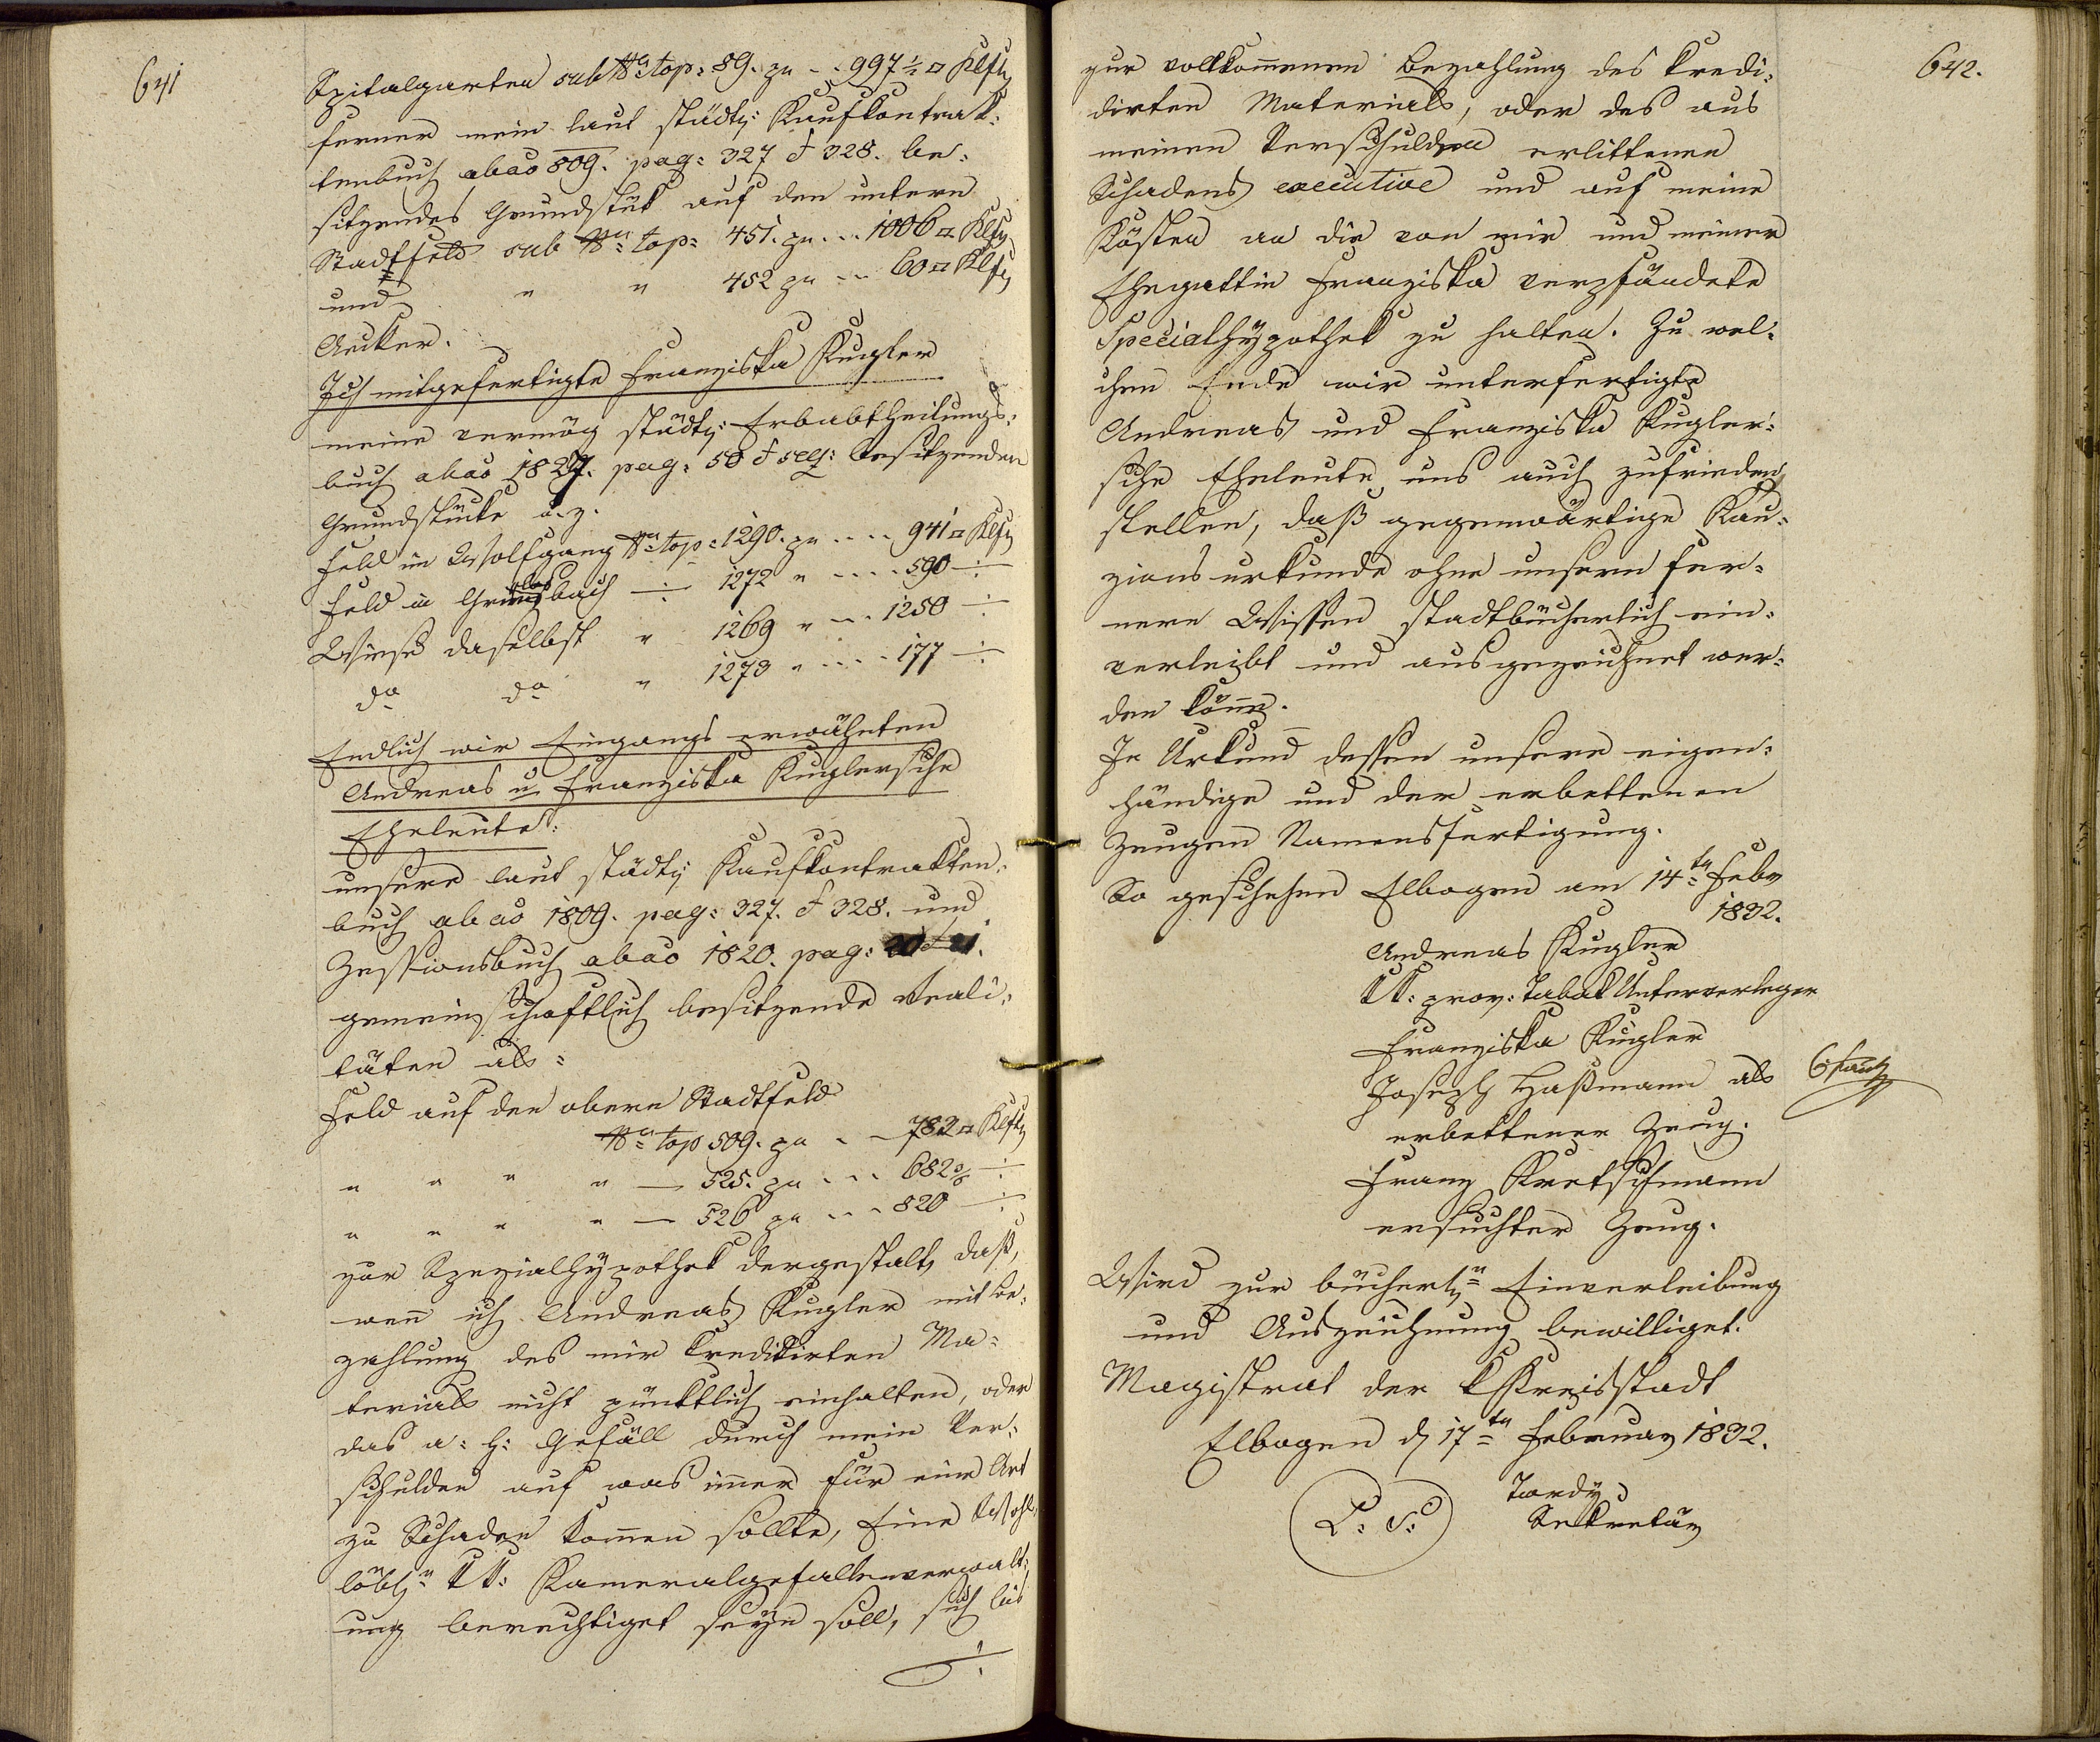 641
Spitalgarten sub Nro top: 89. zu - . . 997 1/2 □ Klft
ferner mein laut städt: Kaufkontrak=
tenbuch ab ao 809. pag: 327 & 328. be=
sitzendes Grundstük auf den untern
Stadtfeld sub Nro top: 451. zu . . . 1006 □ Klft
und " " 452 zu - . . 60 □ Klft
Aecker.
Ich mitgefertigte Franziska Kugler
meine vermög städt: Erbabtheilungs=
buch ab ao 1827. pag: 50 & seq: besitzenden
Grundstücke a. z.
Feld im Wolfgang Nro top: 1290. zu . . . . 941 □ Klft
Feld in bach ÷ 1272 " . . . . 590 ÷
Wiese daselbst " 1269 " . . . 1250 ÷
do do " 1273 " . . . . 177 ÷
Endlich wir Eingangs erwähnten
Andreas u Franziska Kuglersche
Eheleute:
unsere laut städt: Kaufkontrakten=
buch ab ao 1809. pag: 327. & 328. und
Zessionsbuch ab ao 1820. pag: 20 & 21.
gemeinschaftlich besitzende Reali=
täten als:
Feld auf den obern Stadtfeld
Nro top 509. zu . . 782 □ Klft
" " " " — 525. zu . . . 682 3/6 ÷
" " " " — 526 zu . . . 820 ÷
zur Spezialhÿpothek dergestalt, daß,
wenn ich Andreas Kugler mit Be=
zahlung des mir kreditirten Ma=
terials nicht pünktlich einhalten, oder
das a: h: Gefäll durch mein Ver=
schulden auf was immer für eine Art
zu Schaden komen sollte, Eine Wohl=
löbln KK: Kameralgefällenverwalt=
ung berechtiget seÿn soll, sich bis
÷
642.
zur vollkommenen Bezahlung des kredi=
dirten Materials, oder des aus
meinen Verschulden erlittenen
Schadens executive und auf meine
Kösten an die von mir und meiner
Ehegattin Franziska verpfändete
Specialhÿpothek zu halten. Zu wel=
chem Ende wir unterfertigte
Andreas und Franziska Kugler=
sche Eheleute uns auch zufrieden
stellen, daß gegenwärtige Kau=
zionsurkunde ohne unsern fer=
nern Wissen stadtbücherlich ein=
verleibt und ausgezeichnet wer=
den könne.
In Urkund dessen unsere eigen=
händige und der erbettenen
Zeugen Namensfertigung.
So geschehen Elbogen am 14ten Febr
1832.
Andreas Kugler
KK: prov: Tabak Unterverleger
Franziska Kugler
Joseph Haßmann als
erbettener Zeug.
Franz Kretschmann
ersuchter Zeug.
Wird zur bücherln Einverleibung
und Auszeichnung bewilliget.
Magistrat der K Kreisstadt
Elbogen d 17ten Februar 1832.
L: S:
Tordy
Sekretär